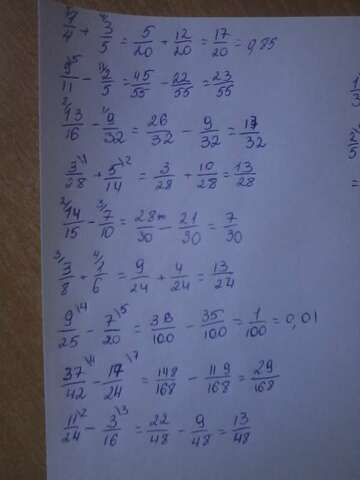 1/4 + 3/5 = 5/20 + 12/20 = 17/20 = 0,85
9/11 - 2/5 = 45/55 - 22/55 = 23/55
13/16 - 9/32 = 26/32 - 9/32 = 17/32
3/28 + 5/14 = 3/28 + 10/28 = 13/28
14/15 - 7/10 = 28/30 - 21/30 = 7/30
3/8 + 1/6 = 9/24 + 4/24 = 13/24
9/25 - 7/20 = 36/100 - 35/100 = 1/100 = 0,01
37/42 - 17/24 = 148/168 - 119/168 = 29/168
11/24 - 3/16 = 22/48 - 9/48 = 13/48